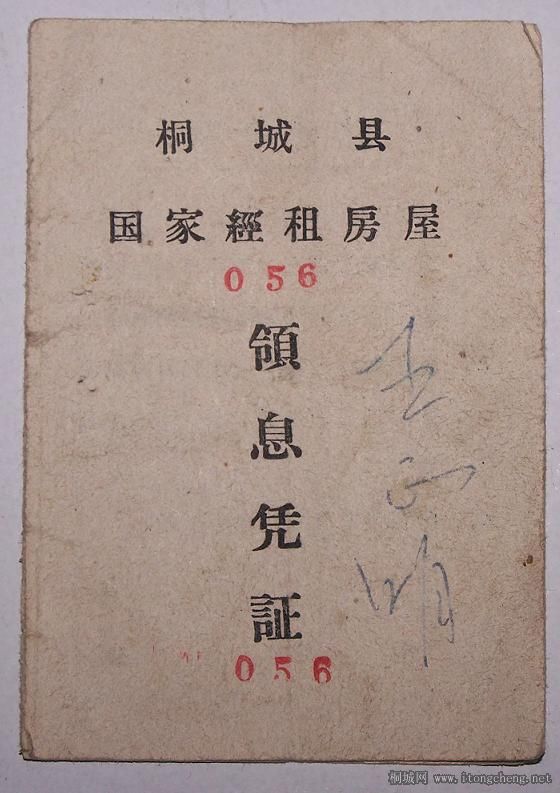 桐城县
国家經租房屋
056
領息凭証
正明
056
桐城网 www.itongcheng.net